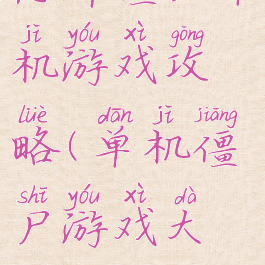 jī yóu xì gōng
机游戏攻
lüè dān jī jiāng
略(单机僵
shī yóu xì dà
尸游戏大